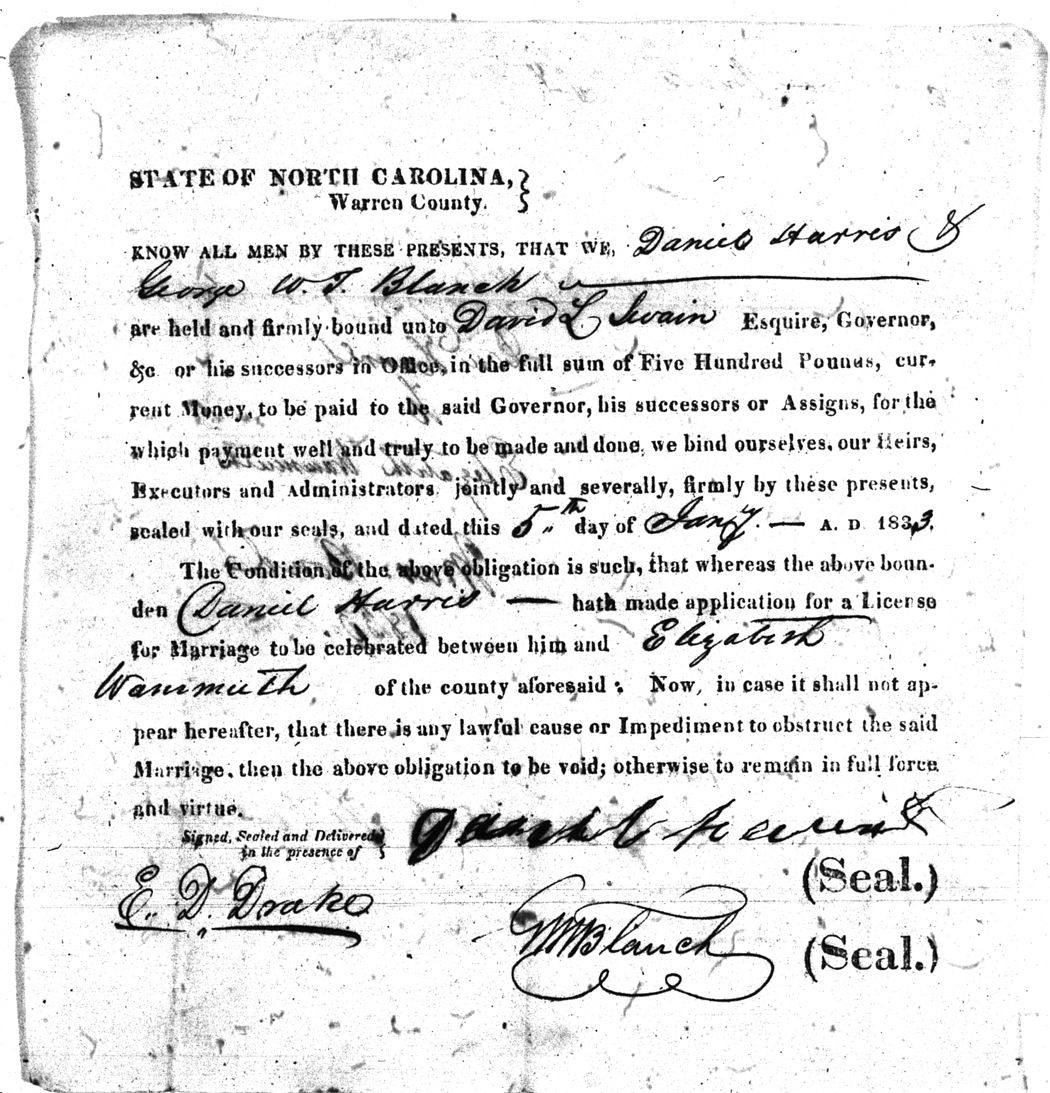 STATE OF NORTH CAROLINA, }
Warren County. }
KNOW ALL MEN BY THESE PRESENTS, THAT WE, Daniel Harris &
George W. T. Blanch
are held and firmly bound unto David L Swain Esquire, Governor,
&c or his successors in Office, in the full sum of Five Hundred Pounds, cur-
rent Money, to be paid to the said Governor, his successors or Assigns, for the
which payment well and truly to be made and done, we bind ourselves, our Heirs,
Executors and Administrators, jointly and severally, firmly by these presents,
sealed with our seals, and dated this 5th day of Jany. — A. D. 1833.
The Condition of the above obligation is such, that whereas the above boun-
den Daniel Harris — hath made application for a License
for Marriage to be celebrated between him and Elizabeth
Wammuth of the county aforesaid: Now, in case it shall not ap-
pear hereafter, that there is any lawful cause or Impediment to obstruct the said
Marriage, then the above obligation to be void; otherwise to remain in full force
and virtue.
Signed, Sealed and Delivered }
in the presence of }
Daniel Harris
(Seal.)
E. D. Drake
Blanch (Seal.)